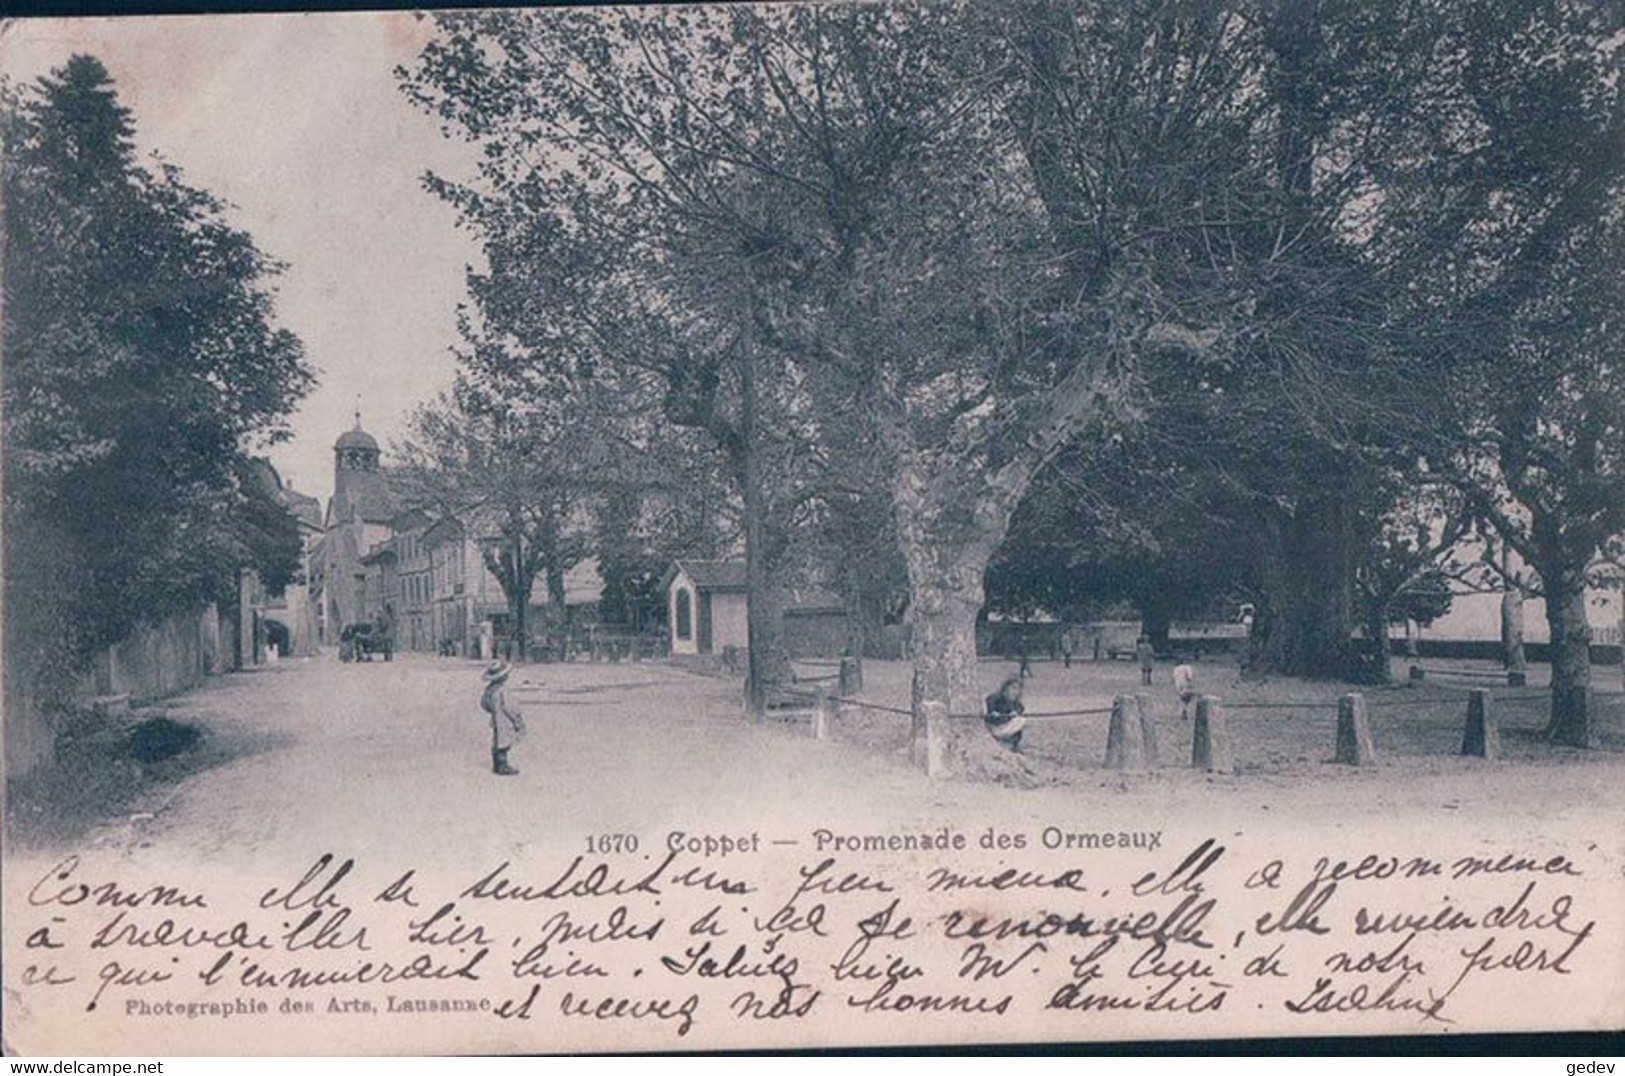 1670 Coppet — Promenade des Ormeaux
Comme elle se sentait un peu mieux, elle a recommencé
à travailler hier, mais si ça se renouvelle, elle reviendra,
ce qui l'ennuierait bien. Saluez bien Mr. le Curé de notre part
Photographie des Arts, Lausanne
et recevez nos bonnes amitiés. Isaline
gedev